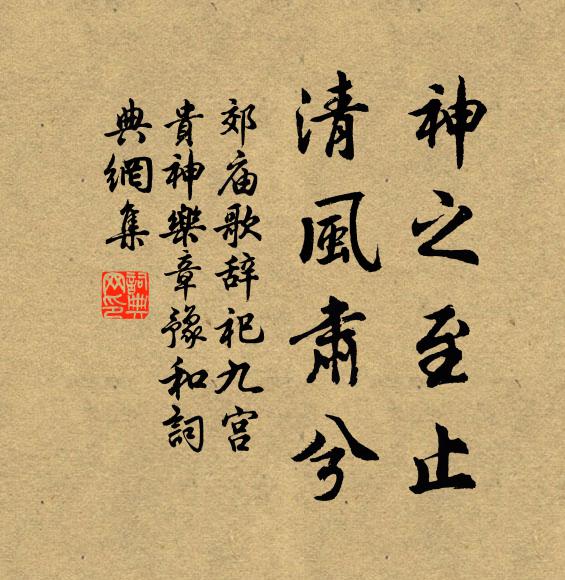 神之至止
清風肅兮
郊庙歌辞祀九宫
貴神樂章豫和詞
典網集
詞典
网印